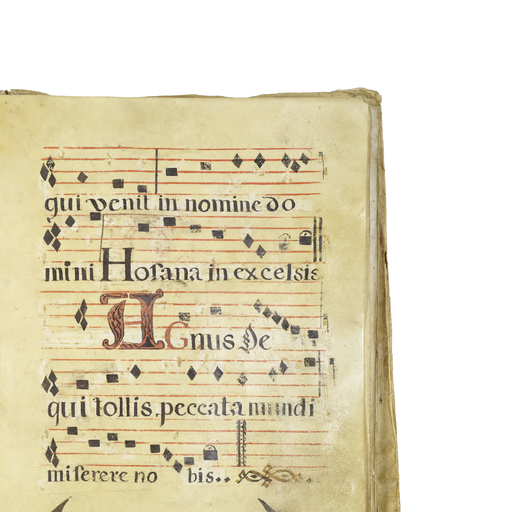 qui venit in nomine do
mini Hosana in excelsis
AGnus De
qui tollis peccata mundi
miserere no bis..